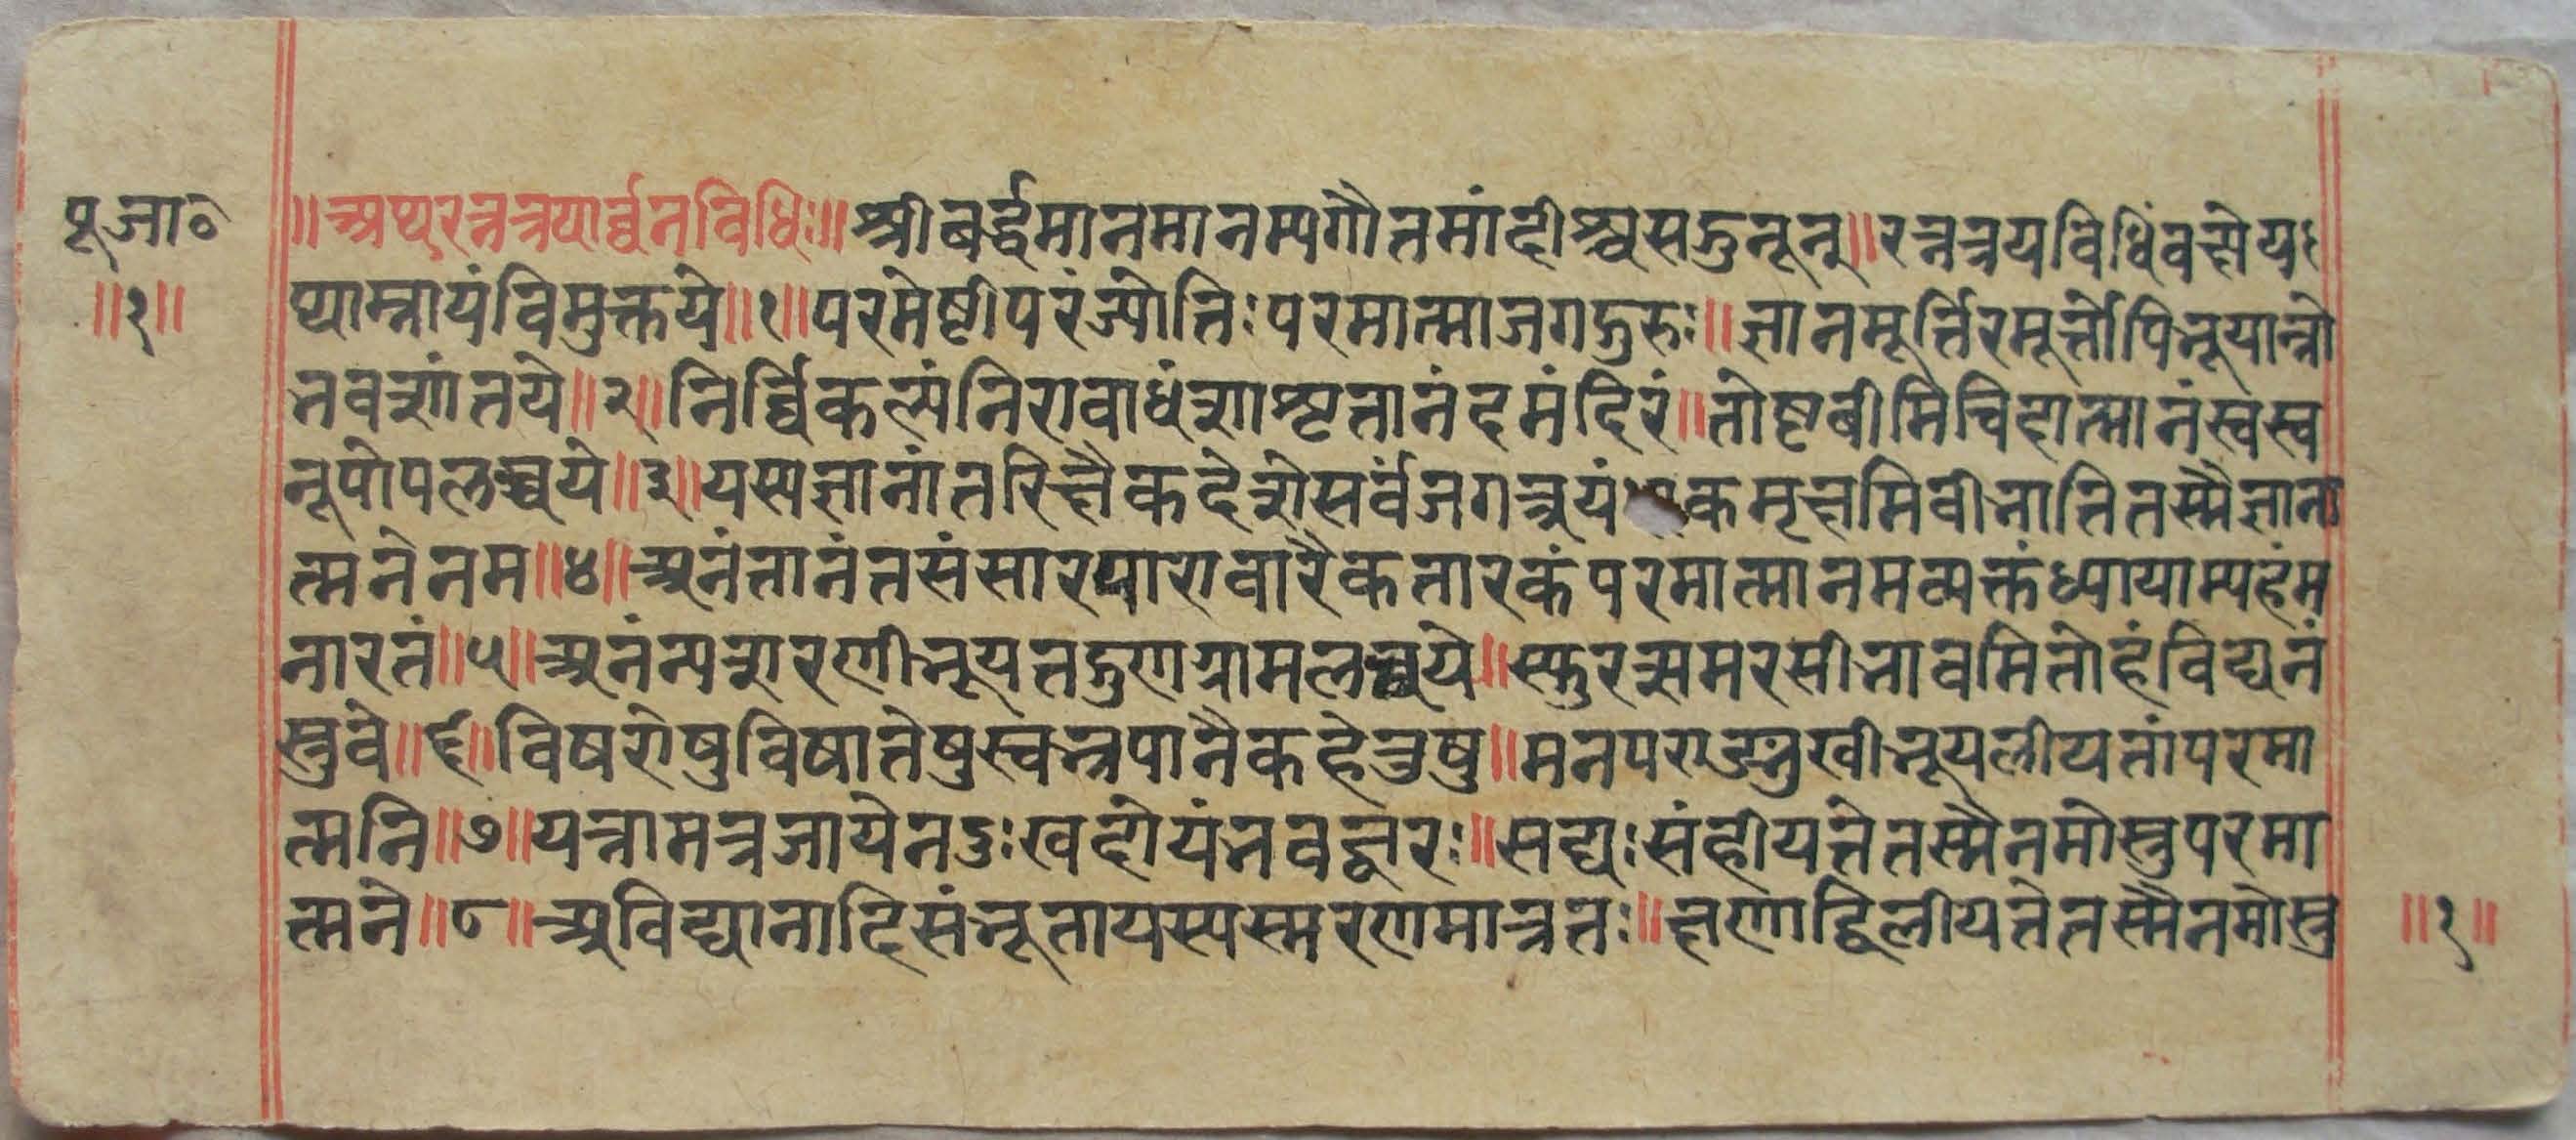 पूजा०
॥अथरत्नत्रयार्च्चनविधिः॥श्रीवर्द्धमानमानम्यगौतमांदीश्चसद्गुरून्॥रत्नत्रयविधिंवक्ष्येयथा
॥१॥
प्याम्नायंविमुक्तये॥१॥परमेष्टीपरंज्योतिःपरमात्माजगद्गुरुः॥ज्ञानमूर्त्तिरमूर्त्तोपिभूयान्नो
भवशांतये॥२॥निर्व्विकल्पंनिरावाधंशाश्वतानंदमंदिरं॥तोष्टवीमिचिदात्मानंस्वस्व
रूपोपलब्धये॥३॥यस्यज्ञानांतरिक्षैकदेशेसर्वंजगत्त्रयं कमृक्षमिवाभातितस्मैज्ञाना
त्मनेनम॥४॥अनंतानंतसंसारपारावारैकतारकंपरमात्मानमव्यक्तंध्यायाम्यहंम
नारतं॥५॥अनंन्यशरणीभूयतद्गुणग्रामलब्धये॥स्फुरत्समरसीभावमितोहंचिद्घनं
स्तुवे॥६॥विषयेषुविषाभेषुस्वभ्रपातैकहेतुषु॥मनपराङ्मुखीभूयलीयतांपरमा
त्मनि॥७॥यन्नाममंत्रजापेनदुःखदोयंभवज्वरः॥सद्यःसंक्षीयतेतस्मैनमोस्तुपरमा
त्मने॥८॥अविद्यानादिसंभूतायस्यस्मरणमात्रतः॥क्षणाद्विलीयतेतस्मैनमोस्तु
॥१॥